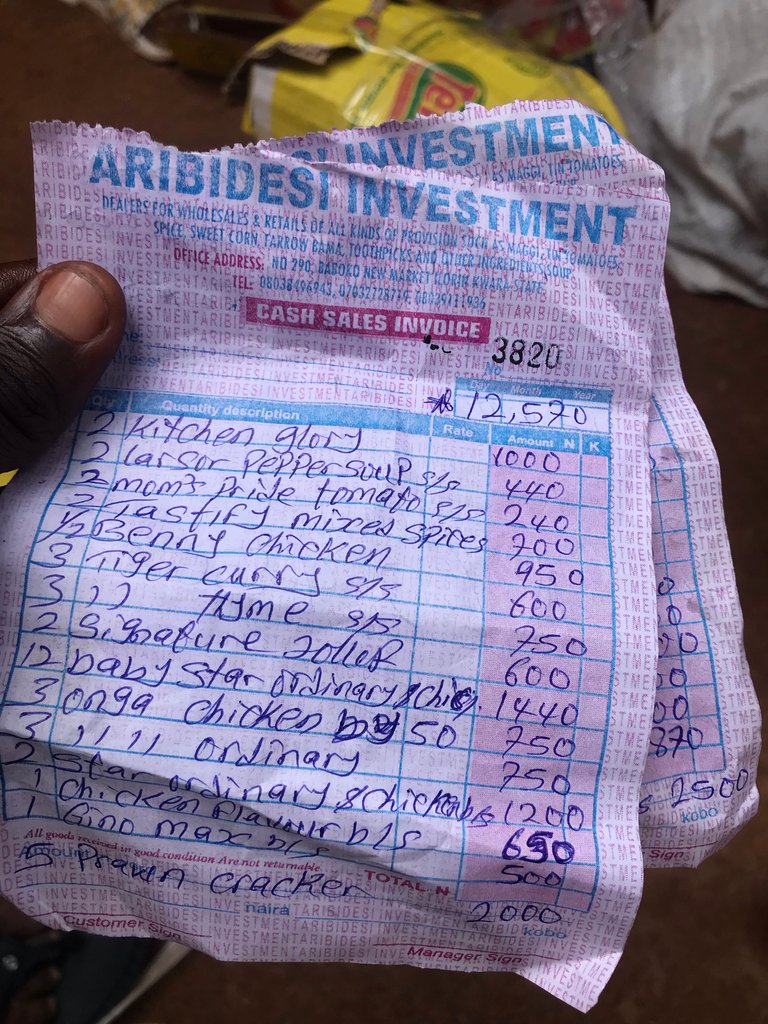 INVESTMENT
AS MAGGI, TIN TOMATOES,
ARIBIDESI INVESTMENT
DEALERS FOR WHOLESALES & RETAILS OF ALL KINDS OF PROVISION SUCH AS MAGGI, TIN TOMATOES
SPICE, SWEET CORN, TARROW BAMA, TOOTHPICKS AND OTHER INGREDIENTS SOUP
OFFICE ADDRESS: NO 290, BABOKO NEW MARKET ILORIN KWARA-STATE
TEL: 08038496943,
CASH SALES INVOICE
No 3820
Day Month Year
12,570
Qty Quantity description Rate Amount N K
2 Kitchen glory 1000
2 Larsor Peppersoup s/s 440
2 mom's Pride tomato s/s 240
2 Tastify mixed spices 700
1/2 Benny chicken 950
3 Tiger curry s/s 600
3 ,, thyme s/s 750
2 Signature 600
12 baby star ordinary & chic. 1440
3 onga chicken by 50 750
3 ,, ,, ordinary 750
2 Star ordinary & chicken 1200
1 Chicken flavour b/s 650
1 Gino max b/s 500
All goods received in good condition Are not returnable
TOTAL N
5 Prawn cracker 2000
naira kobo
Customer Sign Manager Sign
870
2500
kobo
Sign